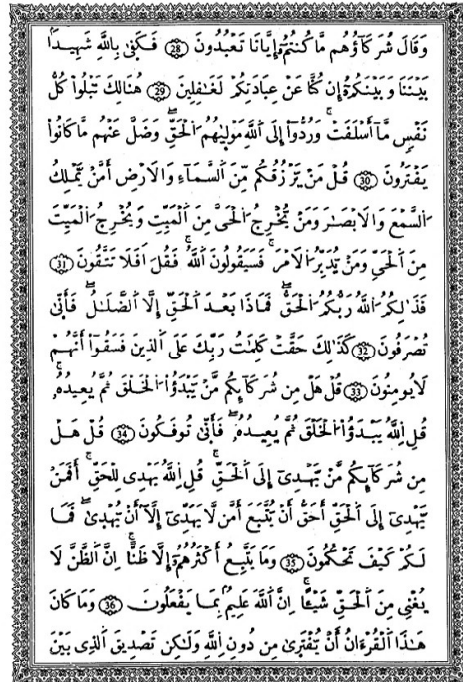 وَقَالَ شُرَكَآؤُهُم مَّا كُنتُمُۥٓ إِيَّانَا تَعْبُدُونَ 28 فَكَفَىٰ بِاللَّهِ شَهِيدًاۢ
بَيْنَنَا وَبَيْنَكُمُۥٓ إِن كُنَّا عَنْ عِبَادَتِكُمْ لَغَٰفِلِينَ 29 هُنَالِكَ تَبْلُواْ كُلُّ
نَفْسٖ مَّآ أَسْلَفَتْ وَرُدُّوٓاْ إِلَى اَللَّهِ مَوْلَىٰهُمُ اُلْحَقِّ وَضَلَّ عَنْهُم مَّا كَانُواْ
يَفْتَرُونَ 30 قُلْ مَنْ يَّرْزُقُكُم مِّنَ اَلسَّمَآءِ وَالَارْضِ أَمَّنْ يَّمْلِكُ
اُلسَّمْعَ وَالَابْصَٰرَ وَمَنْ يُّخْرِجُ اُلْحَىَّ مِنَ اَلْمَيِّتِ وَيُخْرِجُ اُلْمَيِّتَ
مِنَ اَلْحَىِّ وَمَنْ يُّدَبِّرُ اُلَامْرَ فَسَيَقُولُونَ اَللَّهُ فَقُلَ اَفَلَا تَتَّقُونَ 31
فَذَٰلِكُمُ اُللَّهُ رَبُّكُمُ اُلْحَقُّ فَمَاذَا بَعْدَ اَلْحَقِّ إِلَّا اَلضَّلَٰلُ فَأَنَّىٰ
تُصْرَفُونَ 32 كَذَٰلِكَ حَقَّتْ كَلِمَٰتُ رَبِّكَ عَلَى اَلذِينَ فَسَقُوٓاْ أَنَّهُمْ
لَا يُومِنُونَ 33 قُلْ هَلْ مِن شُرَكَآئِكُم مَّنْ يَّبْدَؤُاْ اُلْخَلْقَ ثُمَّ يُعِيدُهُۥ
قُلِ اِللَّهُ يَبْدَؤُاْ اُلْخَلْقَ ثُمَّ يُعِيدُهُۥ فَأَنَّىٰ تُوفَكُونَ 34 قُلْ هَلْ
مِن شُرَكَآئِكُم مَّنْ يَّهْدِىٓ إِلَى اَلْحَقِّ قُلِ اِللَّهُ يَهْدِى لِلْحَقِّ أَفَمَنْ
يَّهْدِىٓ إِلَى اَلْحَقِّ أَحَقُّ أَنْ يُّتَّبَعَ أَمَّن لَّا يَهَدِّىٓ إِلَّآ أَنْ يُّهْدَىٰ فَمَا
لَكُمْ كَيْفَ تَحْكُمُونَ 35 وَمَا يَتَّبِعُ أَكْثَرُهُمُۥٓ إِلَّا ظَنًّا اِنَّ اَلظَّنَّ لَا
يُغْنِى مِنَ اَلْحَقِّ شَيْـًٔا اِنَّ اَللَّهَ عَلِيمُۢ بِمَا يَفْعَلُونَ 36 وَمَا كَانَ
هَٰذَا اَلْقُرْءَانُ أَنْ يُّفْتَرَىٰ مِن دُونِ اِللَّهِ وَلَٰكِن تَصْدِيقَ اَلذِى بَيْنَ